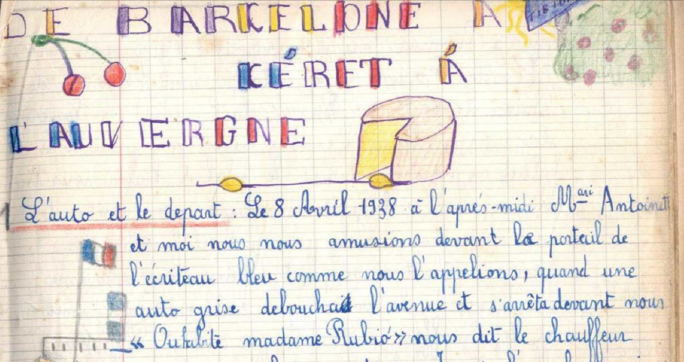 DE BARCELONE A
KÉRET Á
L'AUVERGNE
1 L'auto et le depart : Le 8 Avril 1938 à l'aprés-midi Mari Antoinett
et moi nous nous amusions devant la porteil de
l'écriteau bleu comme nous l'appelions, quand une
auto grise debouchait l'avenue et s'arrêta devant nous
— « Oùhabite madame Rubió » nous dit le chauffeur